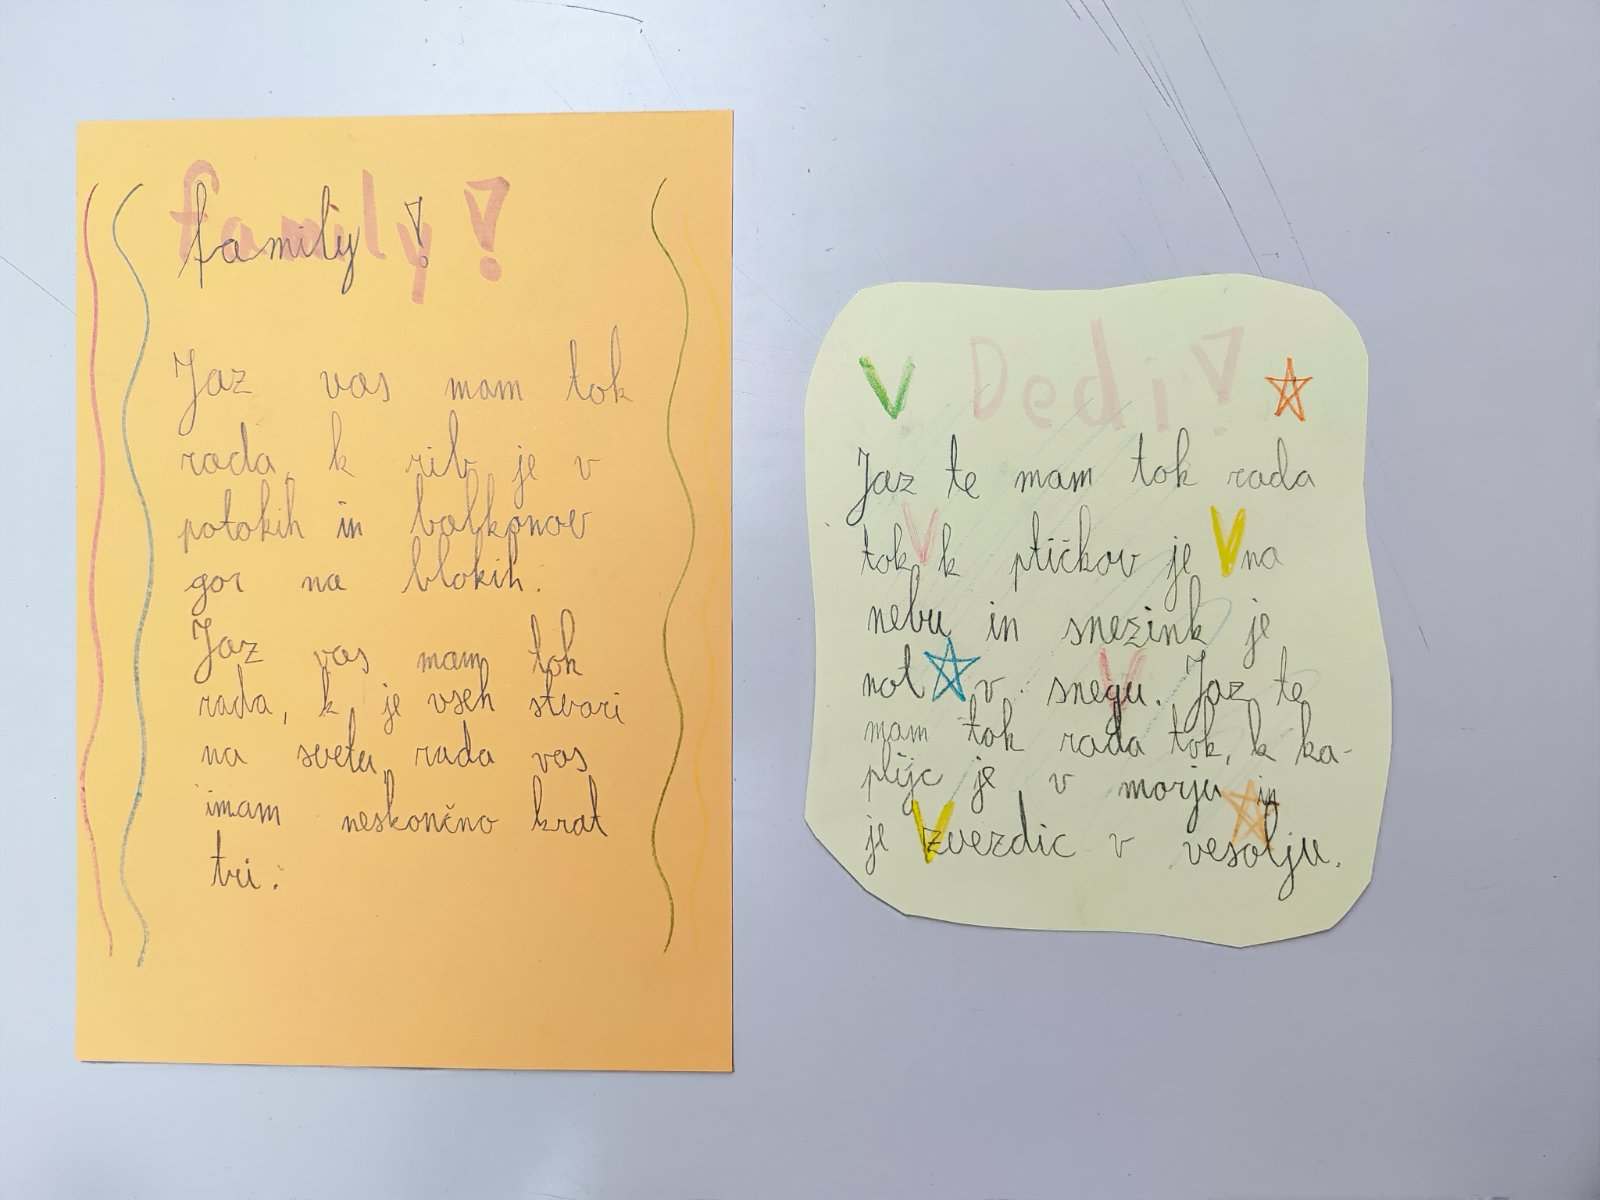 family!
family!
Jaz vas mam tok
rada, k rib je v
potokih in balkonov
gor na blokih.
Jaz vas mam tok
rada, k je vseh stvari
na svetu, rada vas
imam neskončno krat
tri.
Dedi!
Jaz te mam tok rada
tok, k ptičkov je na
nebu in snežink je
not v snegu. Jaz te
mam tok rada tok, k ka-
pljic je v morju in
je zvezdic v vesolju.